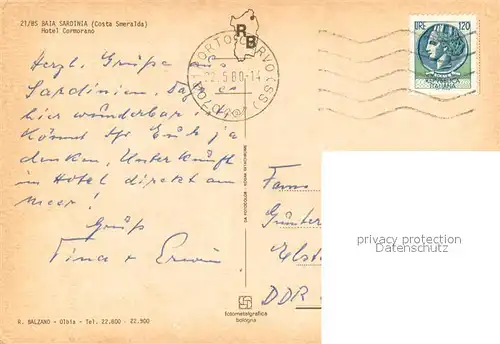 21/85 BAIA SARDINIA (Costa Smeralda)
Hotel Cormorano
RB
PORTO CERVO (SS)
22.5.80-14
LIRE 120
Herzl. Grüße aus
Sardinien. Daß es
hier wunderbar ist
könnt Ihr Euch ja
denken, Unterkunft
im Hotel direkt am
Meer!
Gruß
Tina + Erwin
Fam
Günter
Elst
DDR
privacy protection
Datenschutz
fotometalgrafica
bologna
R. BALZANO - Olbia - Tel. 22.600 - 22.900